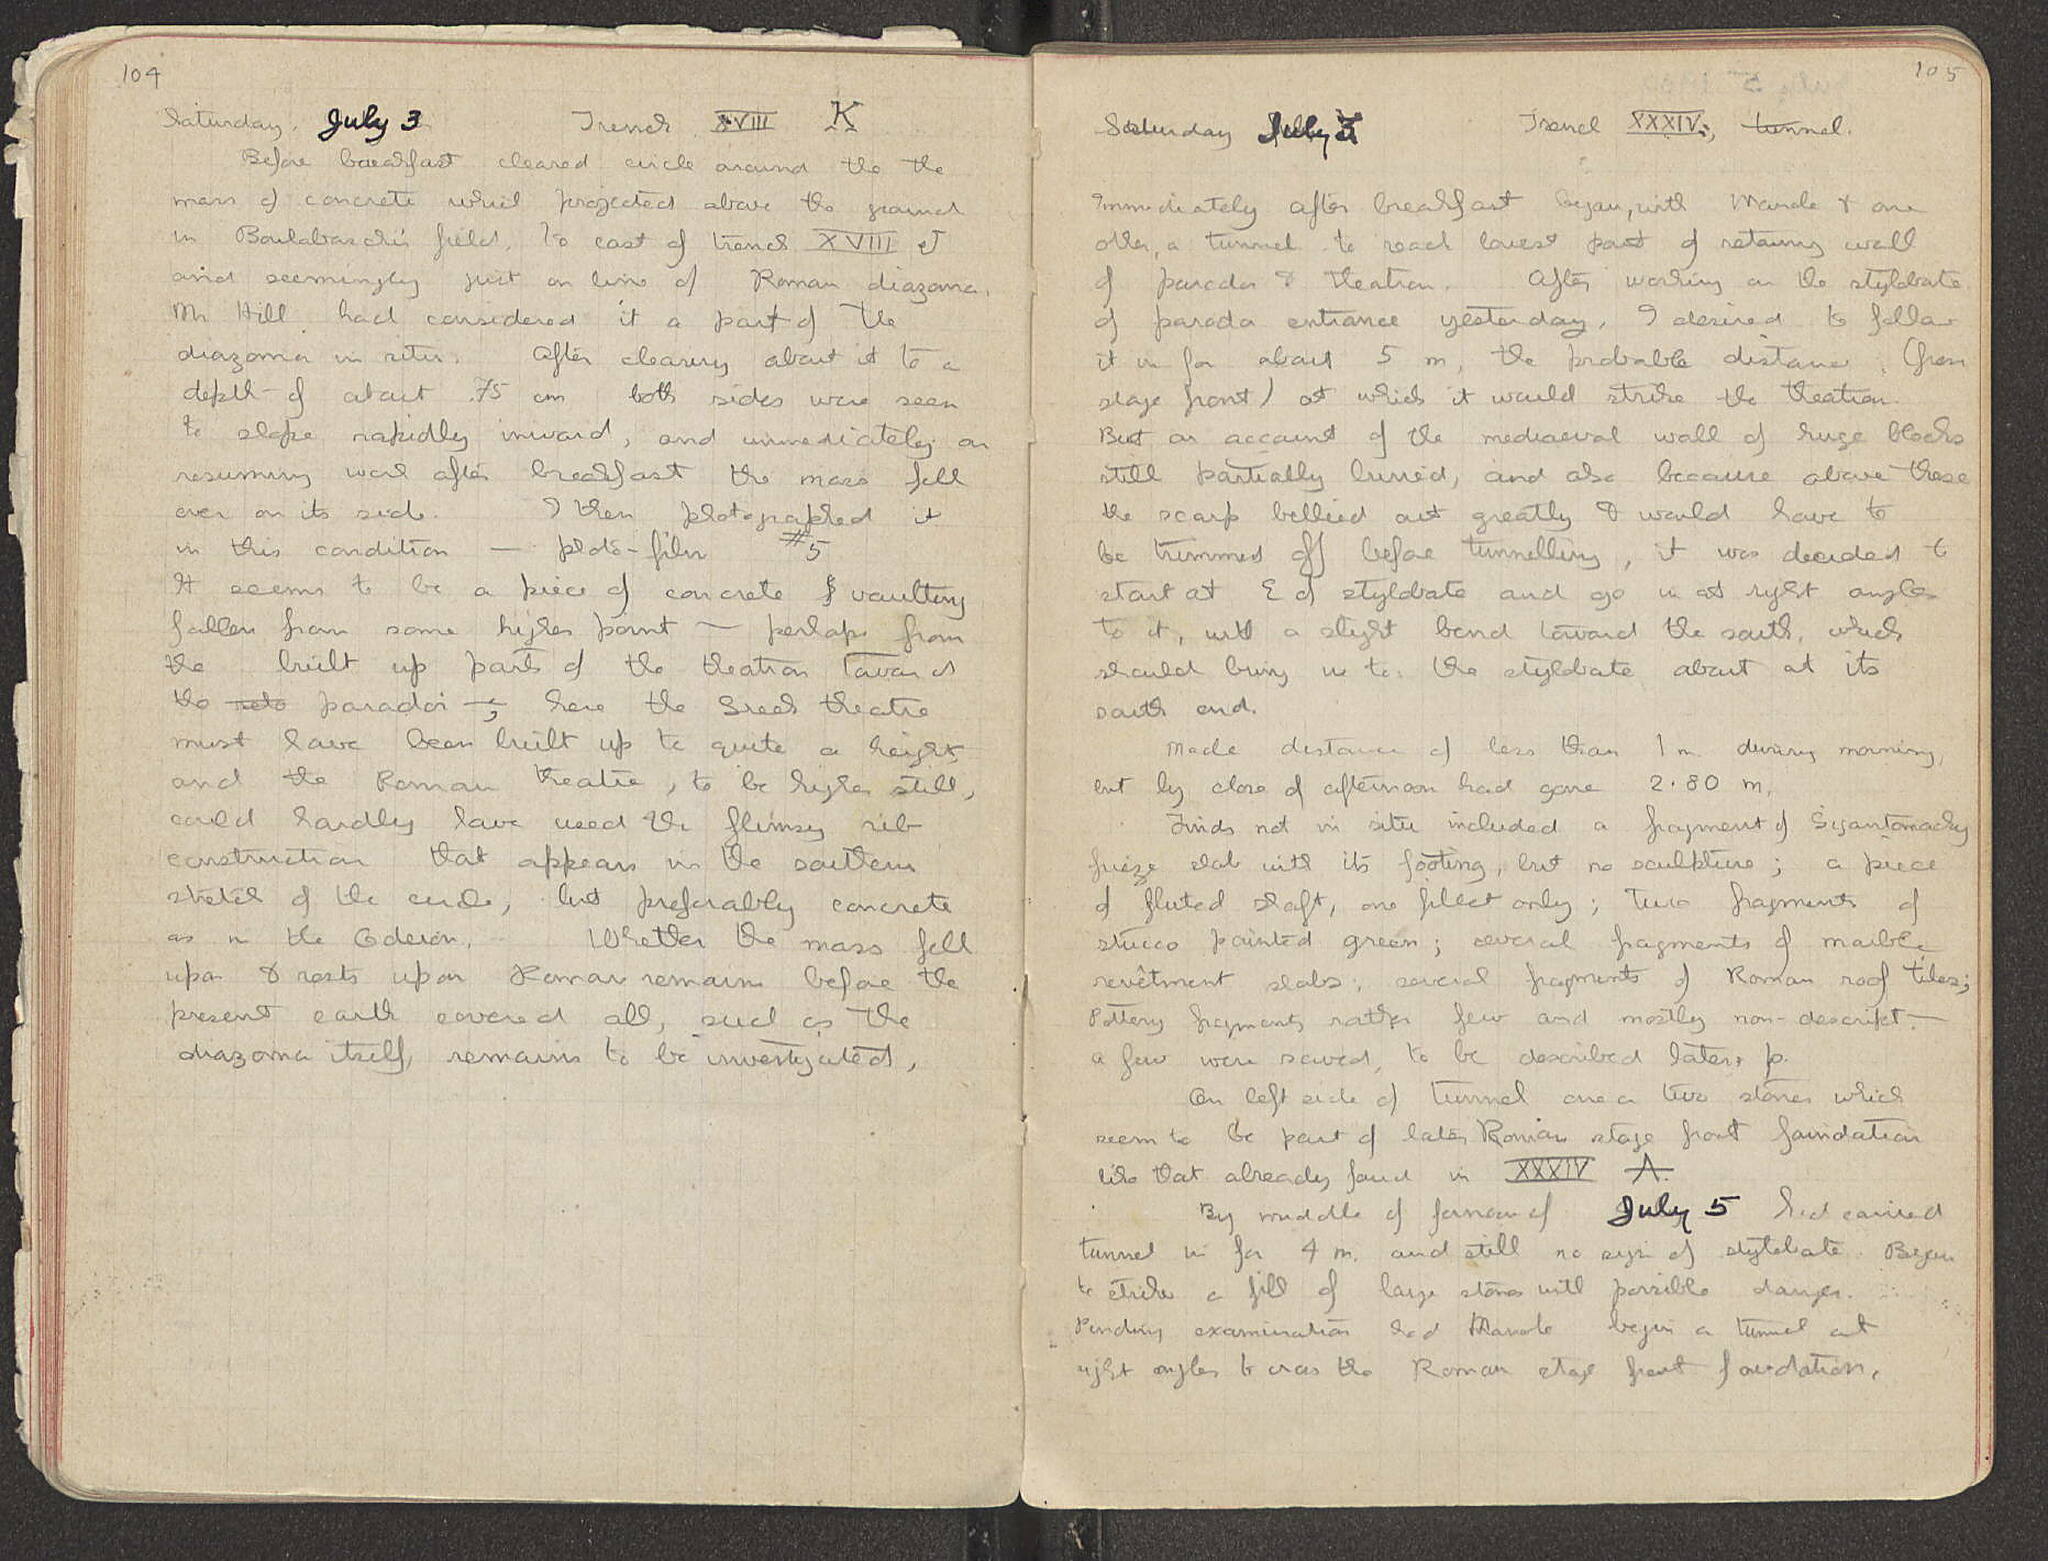 104
Saturday. July 3 Trench XVIII K
Before breakfast cleared circle around the the
mass of concrete which projected above the ground
in field, to east of trench XVIII J
and seemingly just on line of Roman diazoma.
Mr Hill had considered it a part of the
diazoma in situ. After clearing about it to a
depth of about .75 cm both sides were seen
to slope rapidly inward, and immediately on
resuming work after breakfast the mass fell
over on its side. I then photographed it
in this condition — photo-film #5
It seems to be a piece of concrete & vaulting
fallen from some higher point — perhaps from
the built up parts of the theatron toward
the parodoi —; here the Greek theatre
must have been built up to quite a height
and the Roman theatre, to be higher still,
could hardly have used the flimsy rib
construction that appears in the southern
stretch of the circle, but preferably concrete
as in the Odeion. Whether the mass fell
upon & rests upon Roman remains before the
present earth covered all, such as the
diazoma itself, remains to be investigated.
105
Saturday July 3 Trench XXXIV, tunnel.
Immediately after breakfast began, with Manole & one
other, a tunnel to reach lowest part of retaining wall
of parodos & theatron. After working on the stylobate
of parodos entrance yesterday, I desired to follow
it in for about 5 m, the probable distance (from
stage front) at which it would strike the theatron.
But on account of the mediaeval wall of huge blocks
still partially buried, and also because above these
the scarp bellied out greatly & would have to
be trimmed off before tunnelling, it was decided to
start at E of stylobate and go in at right angles
to it, with a slight bend toward the south, which
should bring us to the stylobate about at its
south end.
Made distance of less than 1 m during morning,
but by close of afternoon had gone 2.80 m.
Finds not in situ included a fragment of Gigantomachy
frieze slab with its footing, but no sculpture; a piece
of fluted shaft, one fillet only; two fragments of
stucco painted green; several fragments of marble
revêtment slabs; several fragments of Roman roof tiles;
Pottery fragments rather few and mostly non-descript —
a few were saved, to be described later, p.
On left side of tunnel one or two stones which
seem to be part of later Roman stage front foundation
like that already found in XXXIV A.
By middle of forenoon of July 5 had carried
tunnel in for 4 m. and still no sign of stylobate. Began
to strike a fill of large stones with possible danger.
Pending examination had Manole begin a tunnel at
right angles to cross the Roman stage front foundation.